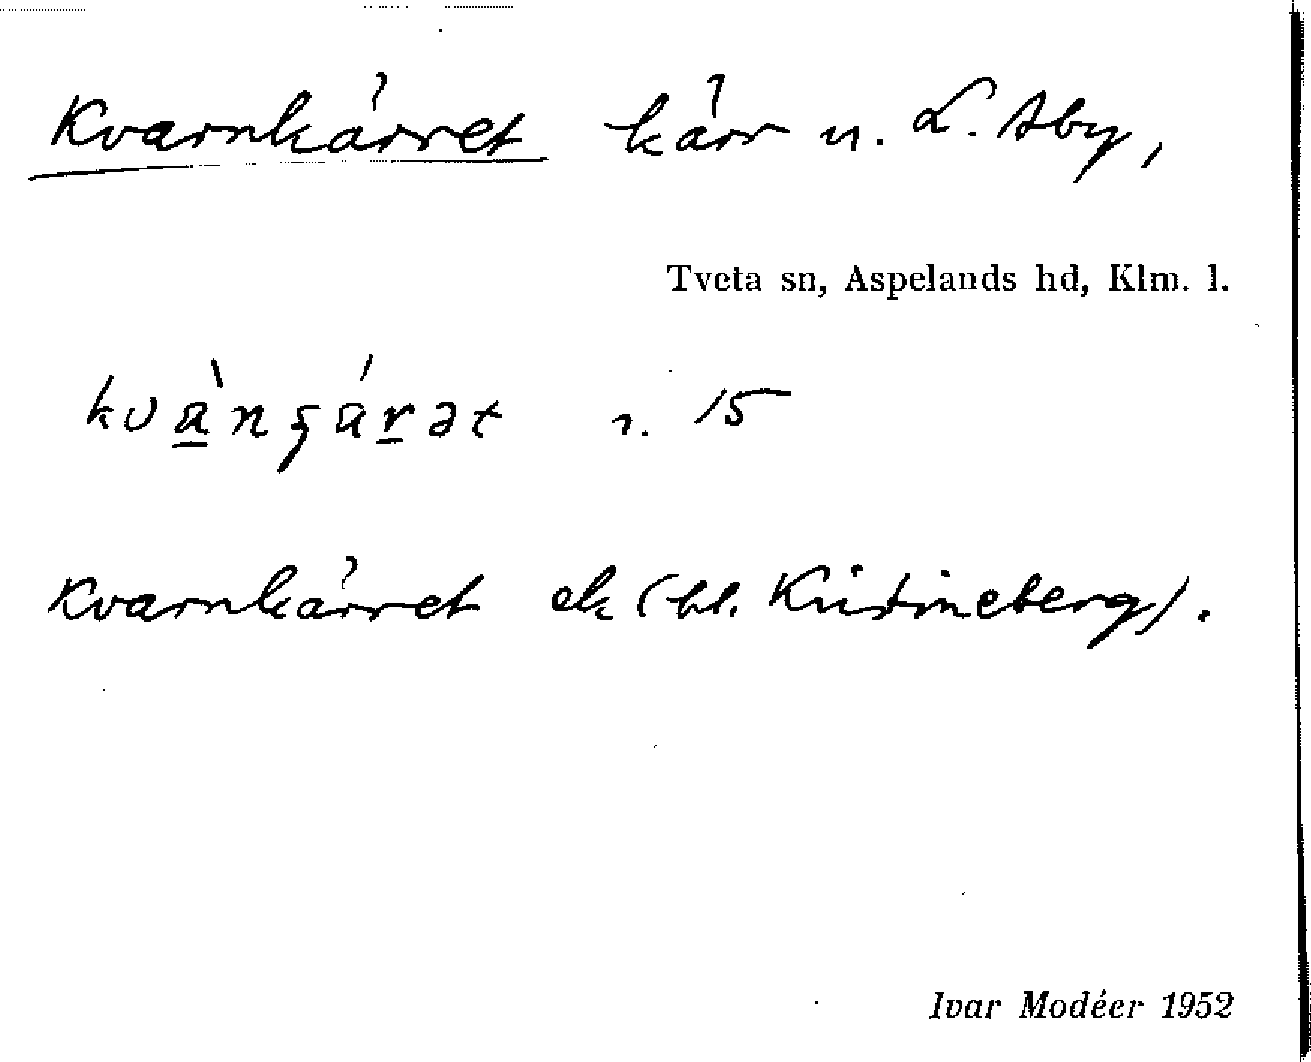 Kvarnkärret kärr n. L. Aby,
Tveta sn, Aspelands hd, Klm. l.
kvànɕárət n. 15
Kvarnkärret ek (bl. Kristineberg).
Ivar Modéer 1952